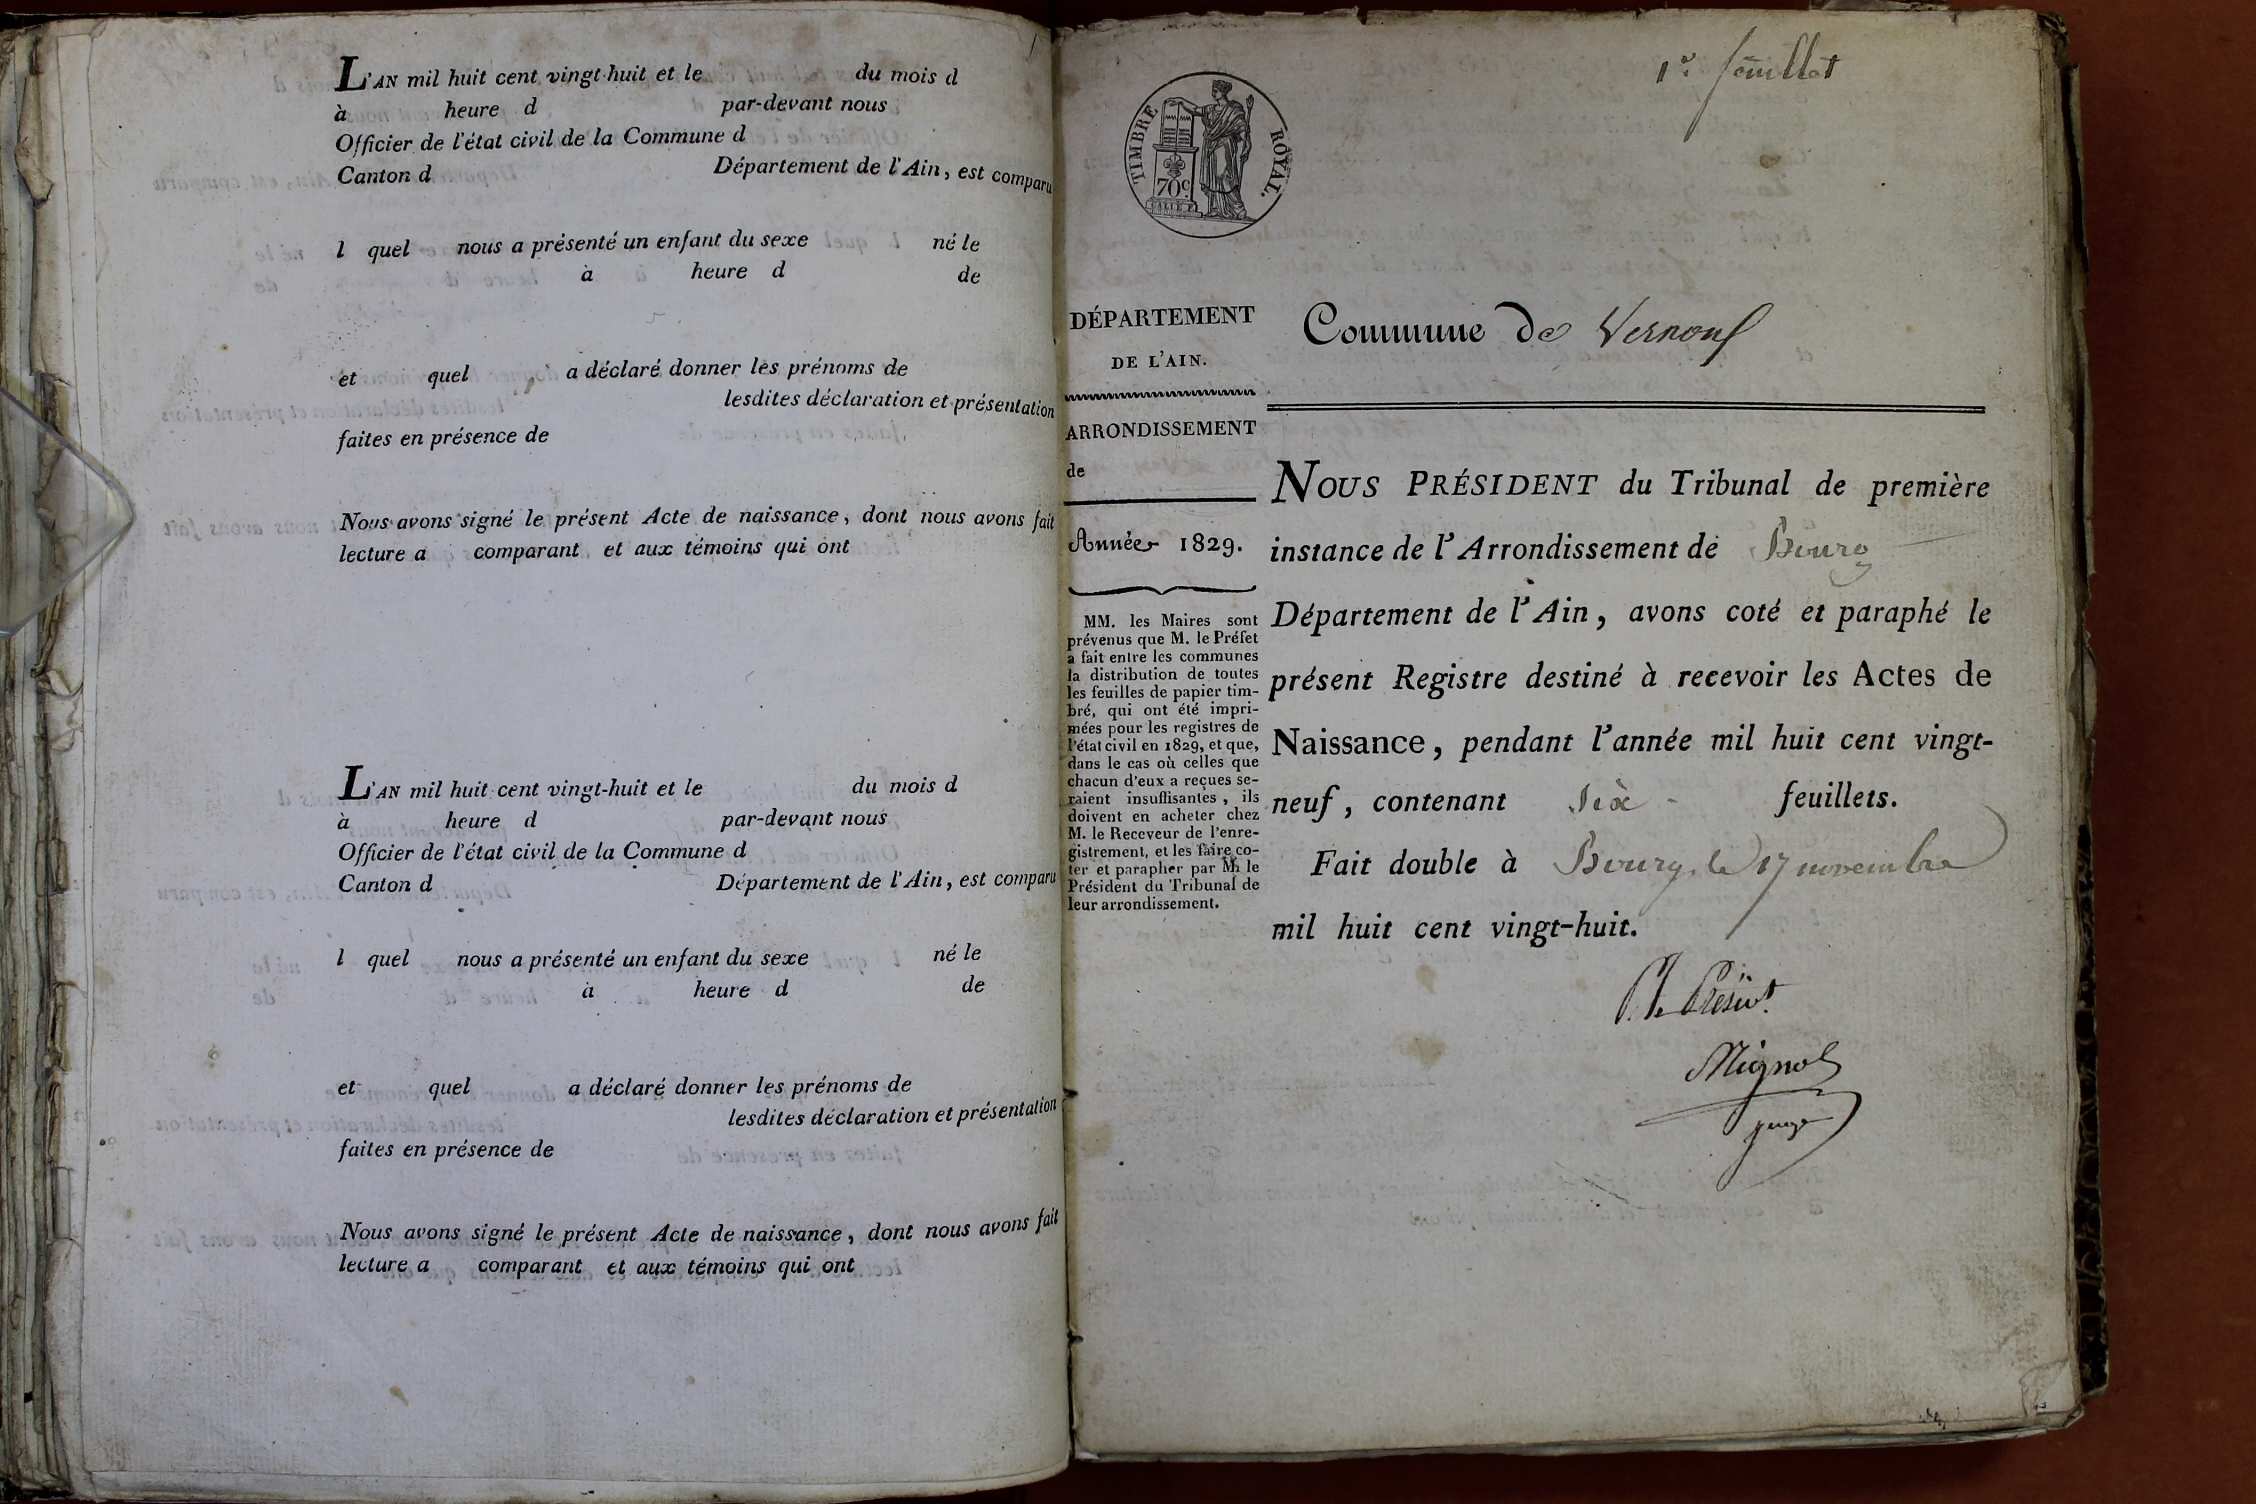 L'AN mil huit cent vingt-huit et le du mois d
à heure d par-devant nous
Officier de l'état civil de la Commune d
Canton d Département de l'Ain, est comparu
l quel nous a présenté un enfant du sexe né le
à heure d de
et quel a déclaré donner les prénoms de
lesdites déclaration et présentation
faites en présence de
Nous avons signé le présent Acte de naissance, dont nous avons fait
lecture a comparant et aux témoins qui ont
L'AN mil huit cent vingt-huit et le du mois d
à heure d par-devant nous
Officier de l'état civil de la Commune d
Canton d Département de l'Ain, est comparu
l quel nous a présenté un enfant du sexe né le
à heure d de
et quel a déclaré donner les prénoms de
lesdites déclaration et présentation
faites en présence de
Nous avons signé le présent Acte de naissance, dont nous avons fait
lecture a comparant et aux témoins qui ont
1er feuillet
TIMBRE ROYAL.
70c
DÉPARTEMENT
DE L'AIN.
ARRONDISSEMENT
de
Année 1829.
MM. les Maires sont
prévenus que M. le Préfet
a fait entre les communes
la distribution de toutes
les feuilles de papier tim-
bré, qui ont été impri-
mées pour les registres de
l'état civil en 1829, et que,
dans le cas où celles que
chacun d'eux a reçues se-
raient insuffisantes, ils
doivent en acheter chez
M. le Receveur de l'enre-
gistrement, et les faire co-
ter et parapher par M. le
Président du Tribunal de
leur arrondissement.
Commune de Vernoux
NOUS PRÉSIDENT du Tribunal de première
instance de l'Arrondissement de Bourg
Département de l'Ain, avons coté et paraphé le
présent Registre destiné à recevoir les Actes de
Naissance, pendant l'année mil huit cent vingt-
neuf, contenant six feuillets.
Fait double à Bourg, le 17 novembre
mil huit cent vingt-huit.
P. le Présidt.
Mignot
juge